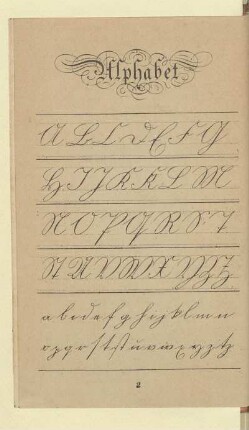 Alphabet
A B C D E F G
H I J K K L M
N O P Q R S T
St U V W X Y Z Z
a b c d e f g h i j k l m n
o p q r s ſ t st u v w x y z tz
2